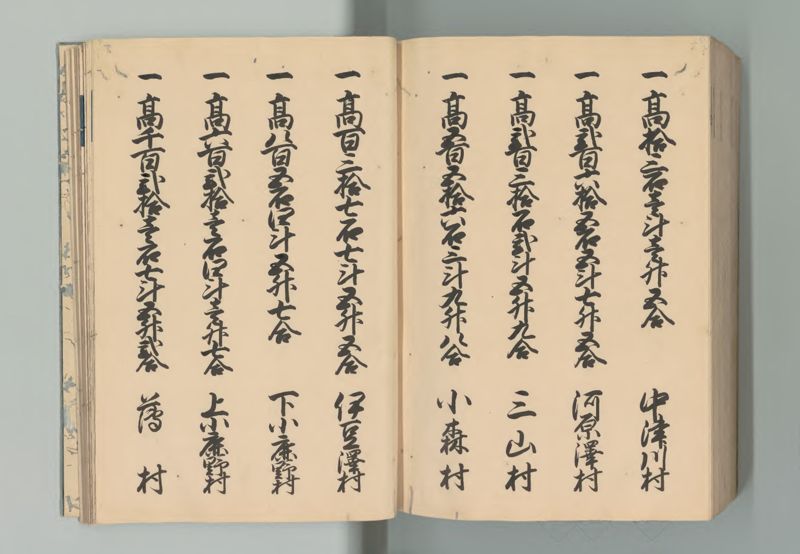 一 髙拾三石壱斗壱升五合 中津川村
一 髙弐百六拾五石五斗七升五合 河原澤村
一 髙弐百三拾石弐斗五升九合 三山村
一 髙五百五拾六石三斗九升八合 小森村
一 髙百三拾七石七斗五升五合 伊豆澤村
一 髙八百五石四斗五升七合 下小鹿野村
一 髙六百弐拾壱石四斗壱升七合 上小鹿野村
一 髙千百弐拾壱石七斗五升弐合 薄村